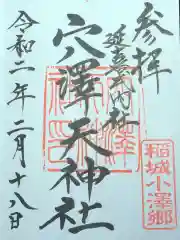 参拝
延喜式内社
穴澤天神社
令和二年二月十八日
稲城小澤郷